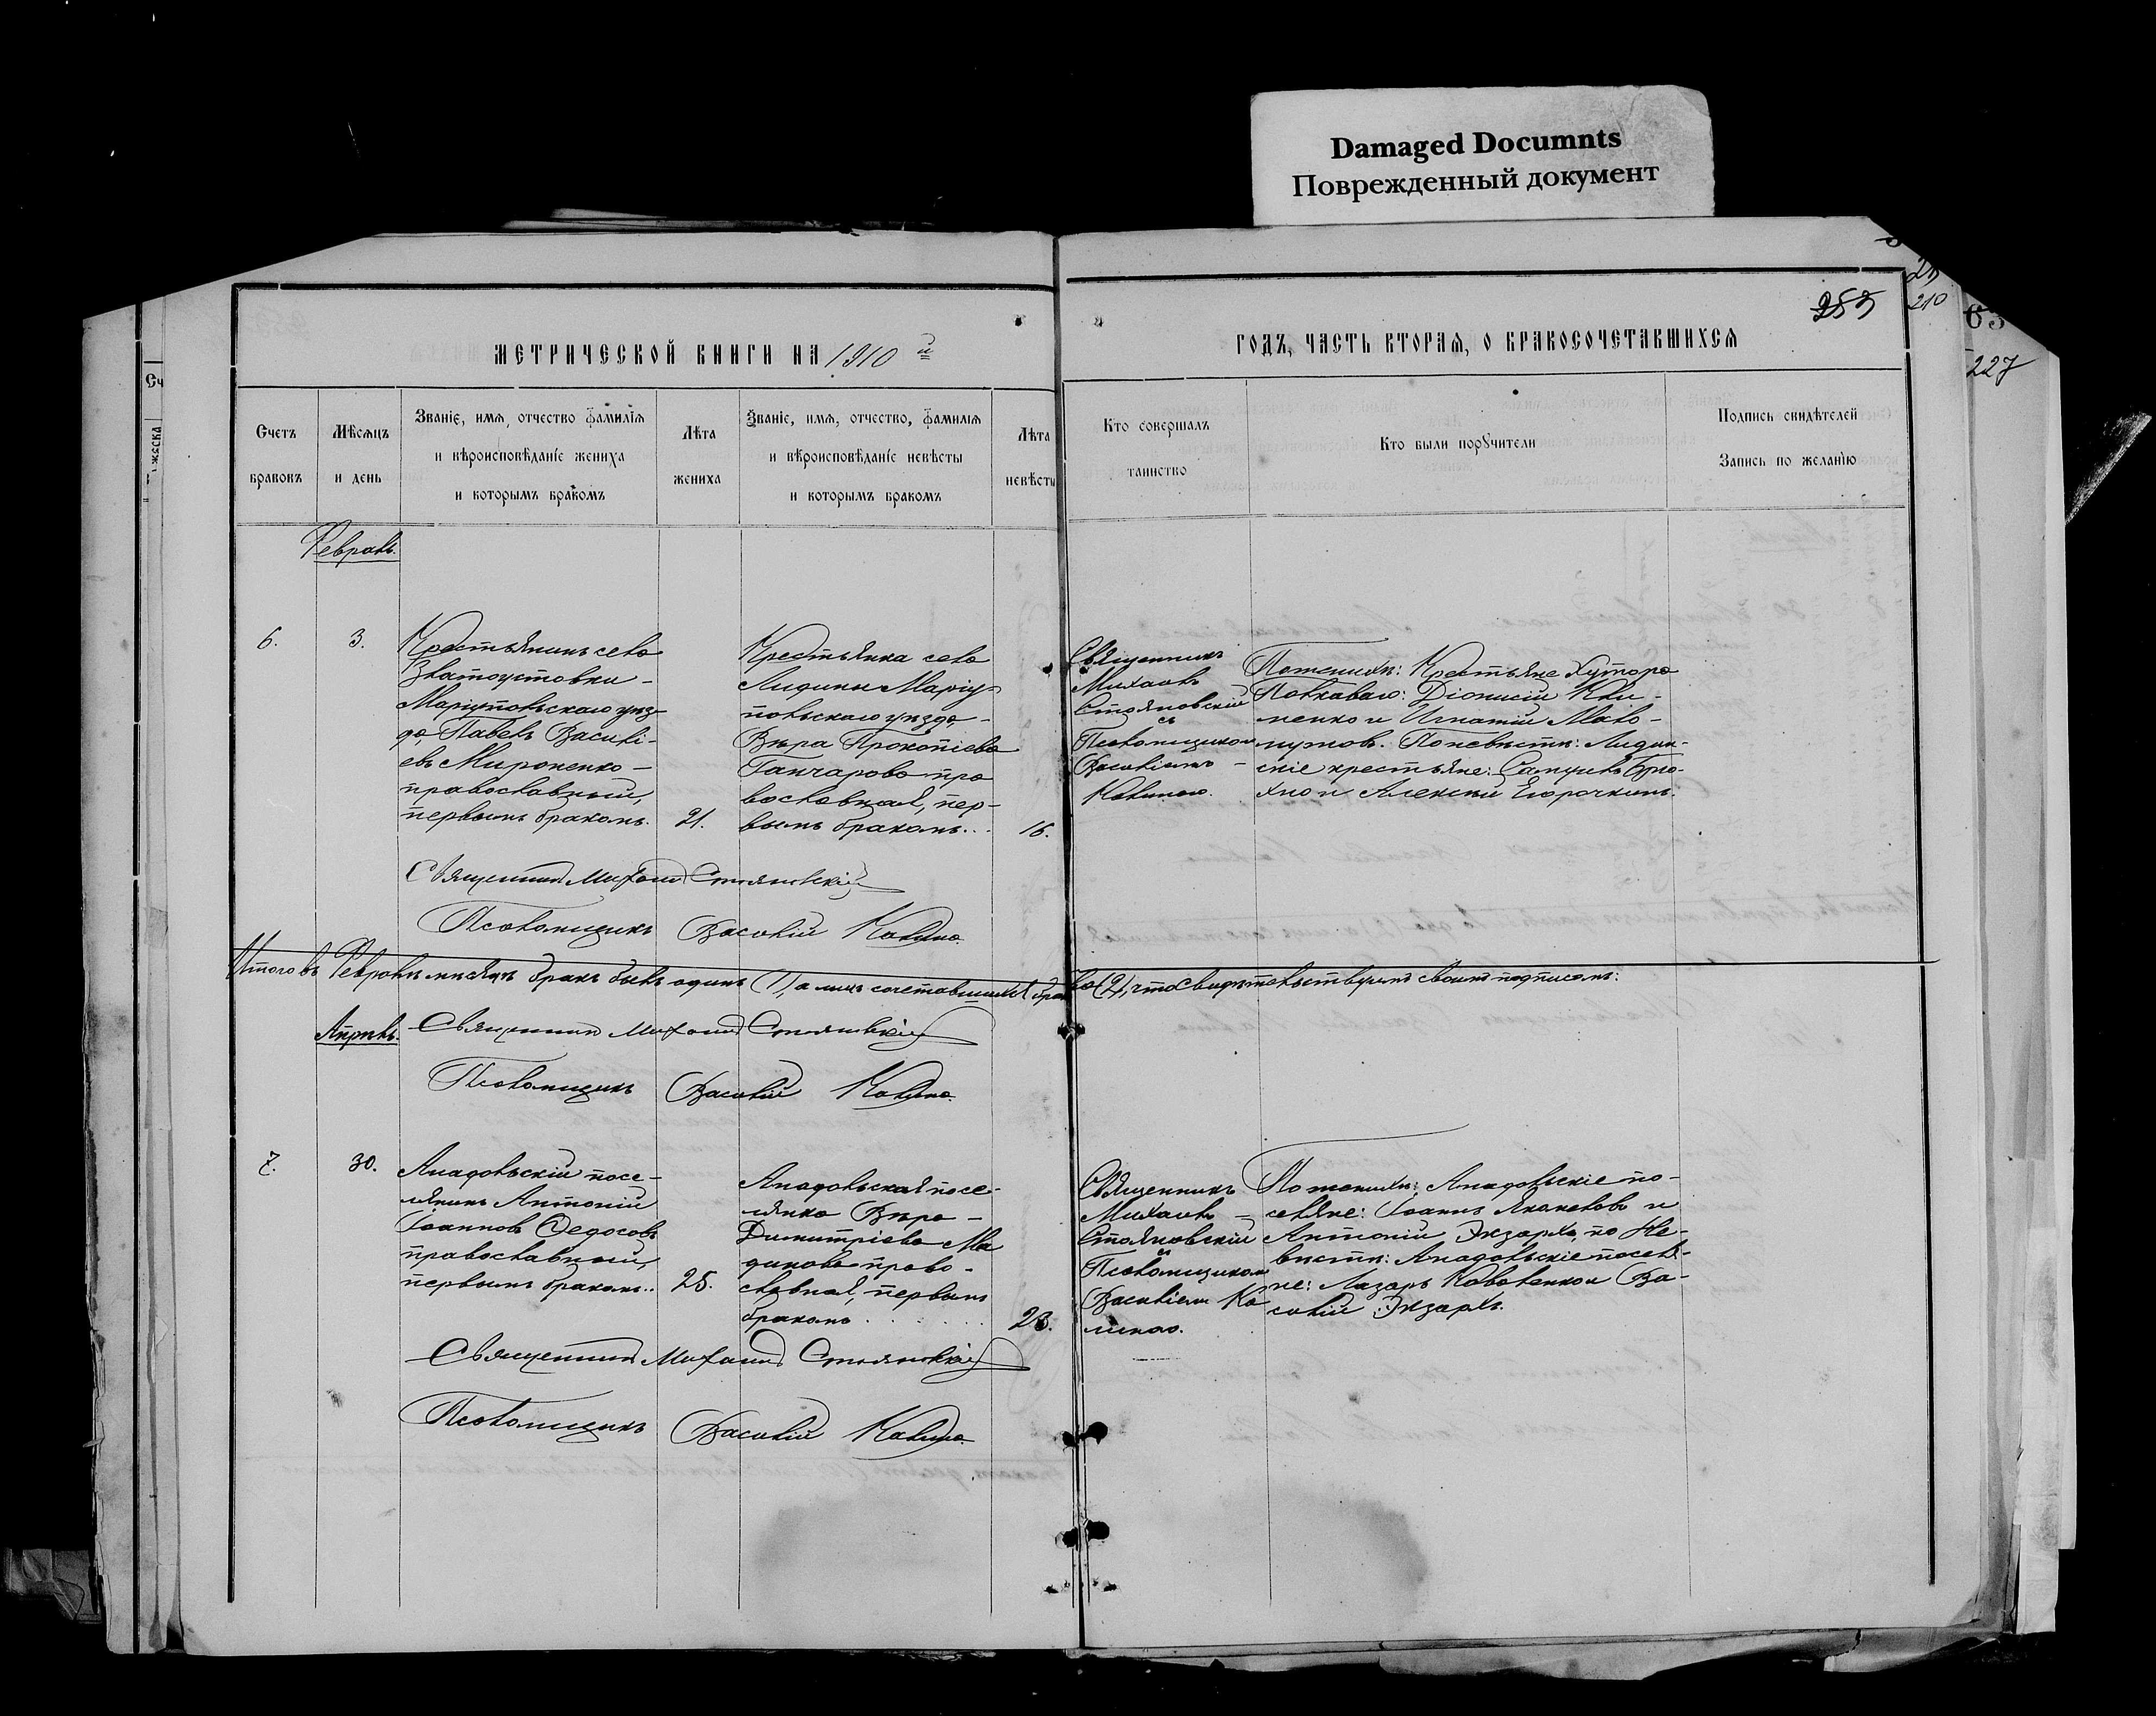 Damaged Documnts
Поврежденный документ
210
227
МЕТРИЧЕСКОЙ КНИГИ НА 1910 й
ГОДЪ, ЧАСТЬ ВТОРАЯ, О БРАКОСОЧЕТАВШИХСЯ
Счетъ
браковъ
Мѣсяцъ
и день
Званіе, имя, отчество фамилія
и вѣроисповѣданіе жениха
и которымъ бракомъ
Лѣта
жениха
Званіе, имя, отчество, фамилія
и вѣроисповѣданіе невѣсты
и которымъ бракомъ
Лѣта
невѣсты
Кто совершалъ
таинство
Кто были поручители
Подпись свидѣтелей
Запись по желанію
Февраль.
6.
3.
Крестьянинъ села
Златоустовки -
Маріупольскаго уѣз-
да, Павелъ Василі-
евъ Мироненко -
православный,
первымъ бракомъ.
21.
Крестьянка села
Лидины Маріу-
польскаго уѣзда -
Вѣра Прокопіева
Ганчарова пра
вославная, пер-
вымъ бракомъ...
16.
Священникъ
Михаилъ
Стояновскій
съ
Псаломщикомъ
Василіемъ -
Калиною.
По женихѣ: Крестьяне хутора
Діонисій Кли-
ненко и Игнатій Мало-
мужовъ. По невѣстѣ: Лидин-
скіе крестьяне: Самуилъ Брю-
хно и Алексѣй Егорочкинъ.
Священникъ Михаилъ Стояновскій
Псаломщикъ Василій Калина.
Итого въ Февралѣ мѣсяцѣ бракъ былъ одинъ (1), а лицъ сочетавшихся два (2), что свидѣтельствуемъ своимъ подписомъ:
Апрѣль.
Священникъ Михаилъ Стояновскій
Псаломщикъ Василій Калина.
7.
30.
Анадольскій посе-
лянинъ Антоній
Іоанновъ Федосовъ
православный,
первымъ бракомъ..
25.
Анадольская посе-
лянка Вѣра -
Димитріева Ма
динова право-
славная, первымъ
бракомъ . . . . . .
23.
Священникъ
Михаилъ -
Стояновскій
и
Псаломщикомъ
Василіемъ Ка
линою.
По женихѣ: Анадольскіе по-
селяне: Іоаннъ и
Антоній Экзархъ, по Не-
вѣстѣ: Анадольскіе поселя-
не: Лазарь Коваленко и Ва-
силій Экзархъ.
Священникъ Михаилъ Стояновскій
Псаломщикъ Василій Калина.